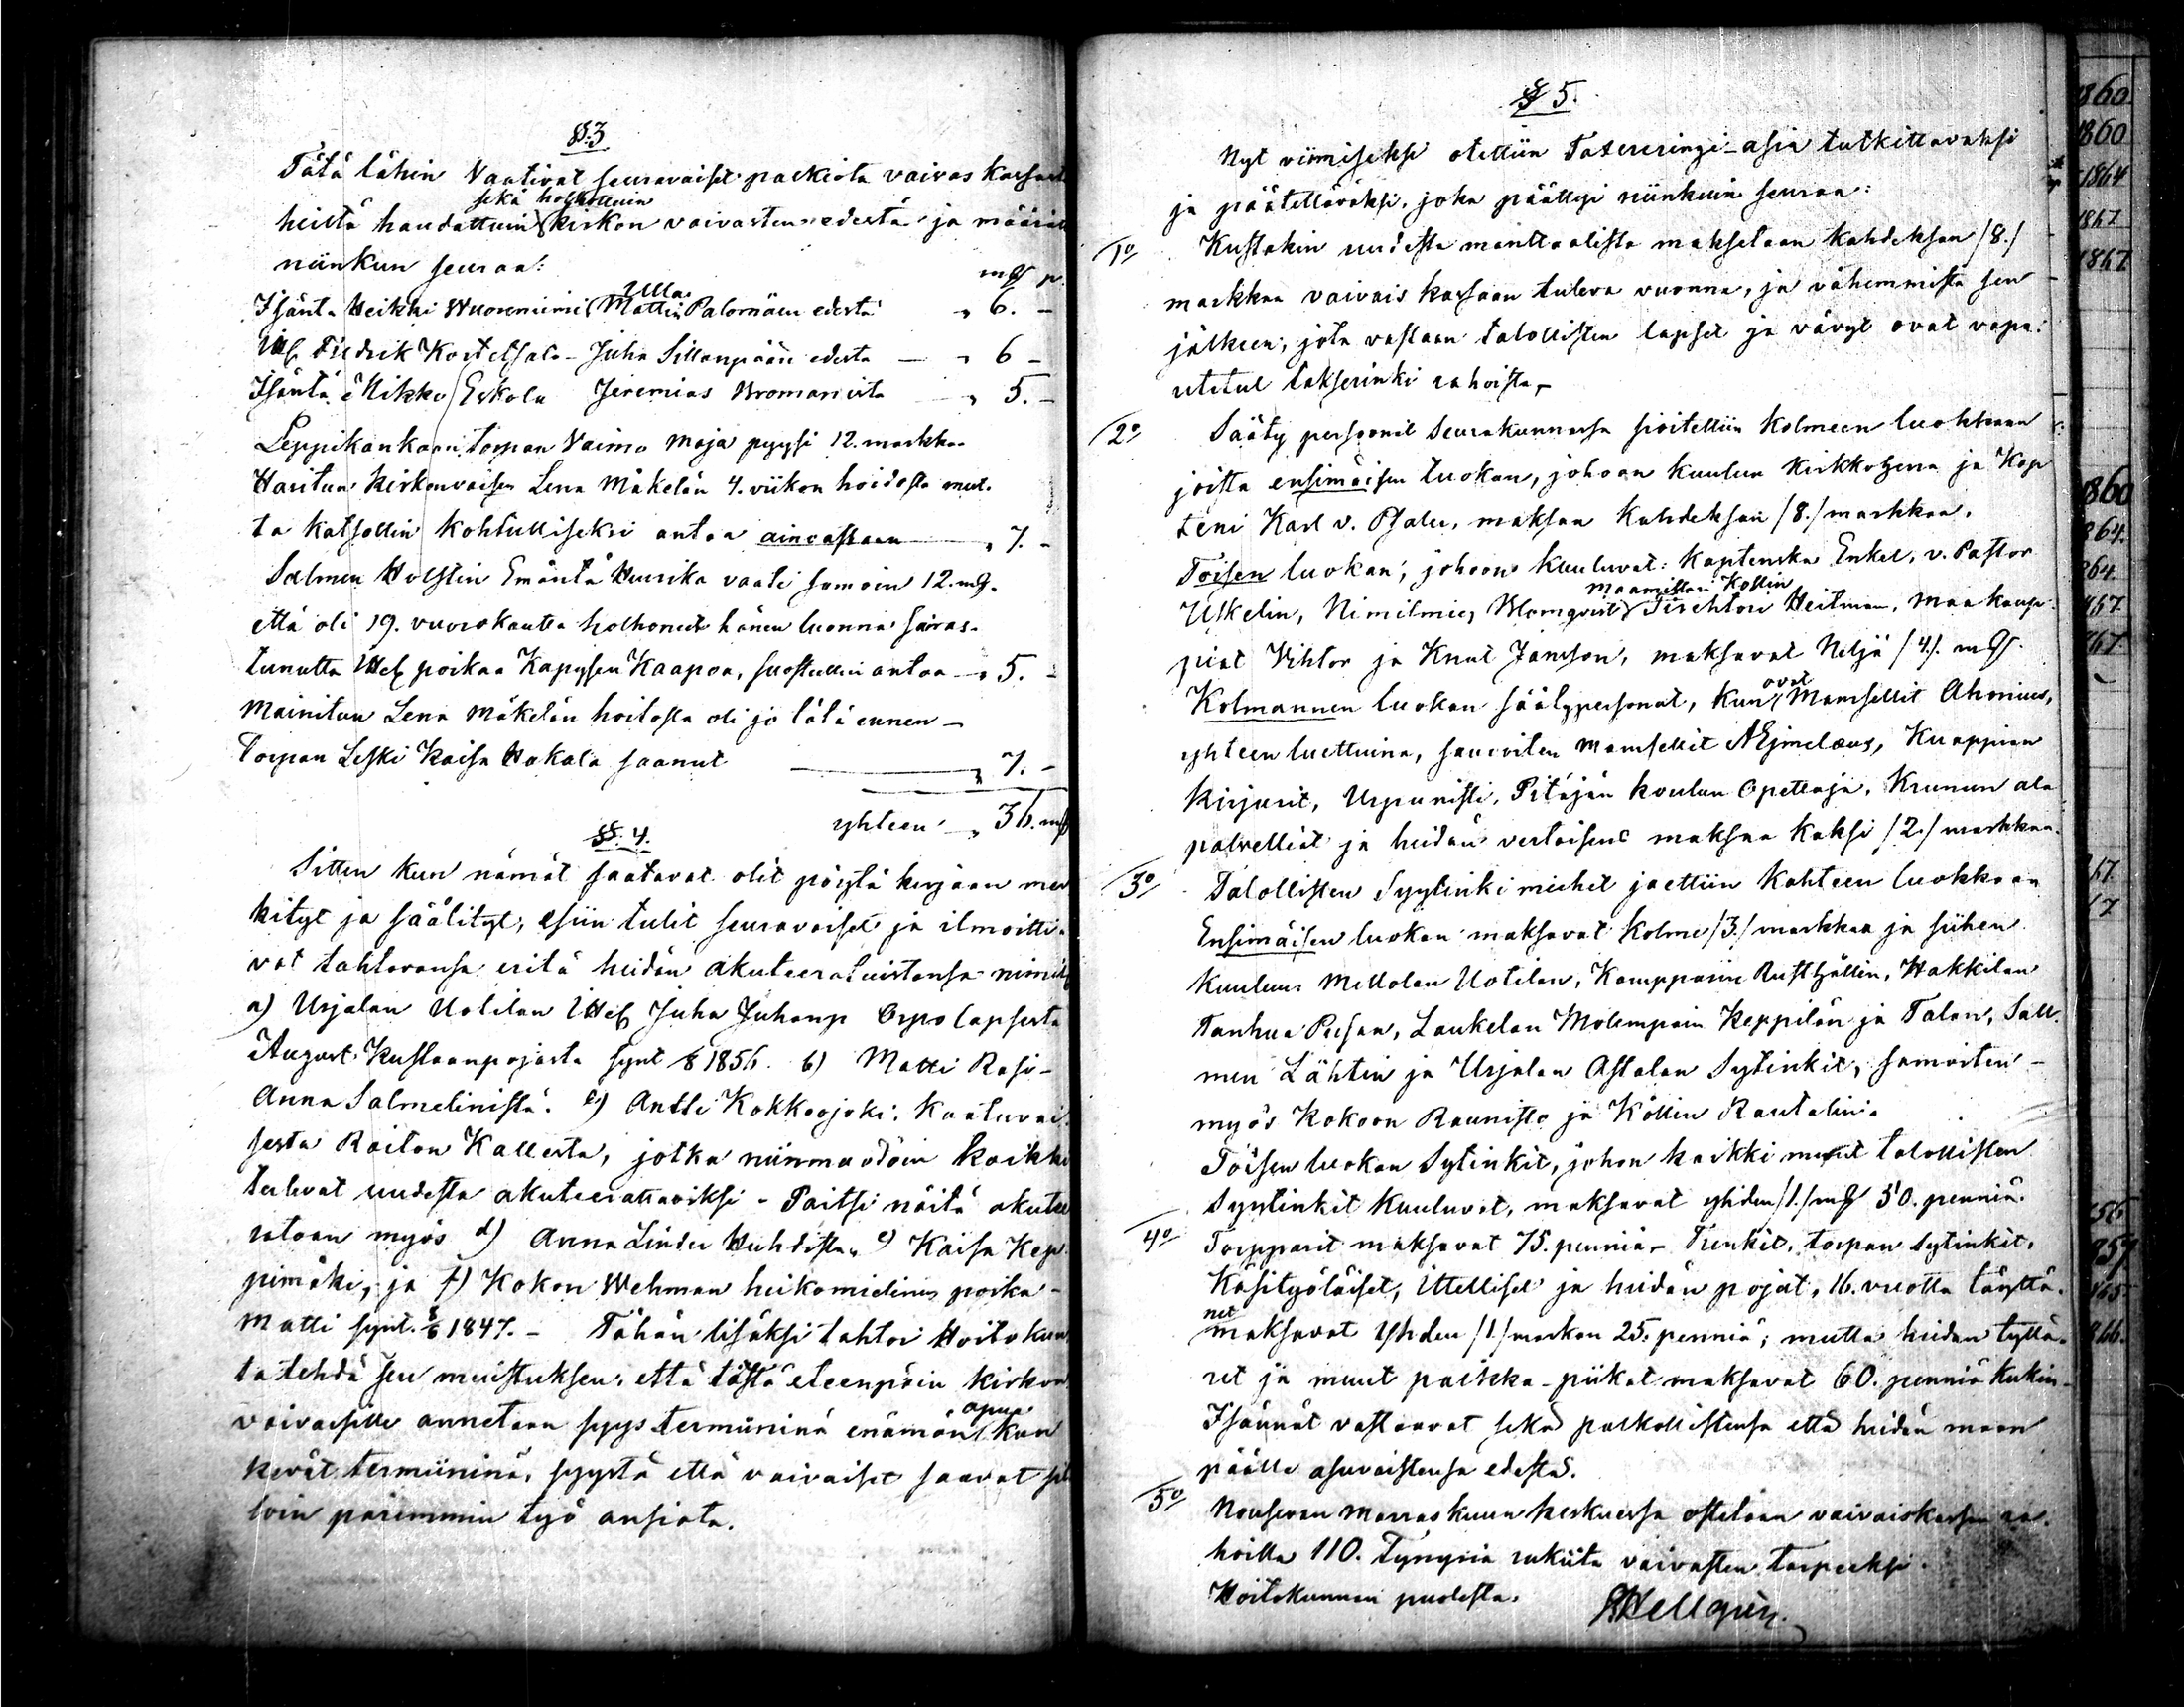 §§.3
Tätä lähin Vaativat seuravaiset palkiota vaivas kassasta
sekä holhottuin
heiltä haudattuin kirkon vaivasten edestä ja määrät
niinkun seuraa:
mk p.
Isäntä Heikki Wuorenimi Ulla Mattin Palomäen edestä " 6. -
Fredrik Kortetsalo - Juha Sillanpään edestä — " 6 -
Isäntä Mikko Eskola Jeremias Bromanista — " 5. -
Leppikankaan torpan Vaimo Maja pyysi 12. markkaa
Haritun Kirkonvaisen Lena Mäkelän 4. viikon hoidosta mut-
ta katsottiin kohtulliseksi antoa ainoastaan — " 7. -
Salmen Holstin Emäntä Heurika vaati samoin 12. mk.
että oli 19. vuorokautta holhonut hänen luonna sairas-
tunutta poikaa Kapysen Kaapoa, suostuttiin antoa — " 5. -
Mainitun Lena Mäkelän hoitosta oli jo tätä ennen —
Torpan Leski Kaisa Hakala saanut — " 7. -
yhteen — " 36. mk
§§. 4.
Sitten kun nämät saatavat olit pöytä kirjaan mer
kityt ja säälityt, esiin tulit seuravaiset ja ilmoitti-
vat tahtovansa eritä heidän akuteeratuistansa nimit
a) Urjalan Uotilan Juha Juhanp Orpo lapsesta
August Kustaanpojasta synt 8 1856. b) Matti Rasi-
Anna Salmelinistä. c) Antti Kokkoojoki: Kaatuvai-
sesta Raitan Kallesta, jotka niinmuodoin kaikki
tulevat uudesta akuteerattaviksi - Paitsi näitä akutee
rataan myös d) Anna Linder Huhdista, e) Kaisa Kep
pimäki, ja f) Kokon Wehman heikomielinen poika -
Matti synt. 8/6 1847. - Tähän lisäksi tahtoi Hoitokun
ta tehdä sen muistuksen, että tästä eteenpäin kirkon
vaivasille annetaan syys termiininä enämän apua kun
kevät termiininä, syystä että vaivaiset saavat sil
loin paremmin työ ansiota.
§ 5.
Nyt viimiseksi otettiin Taxeeringi-asia tutkittavaksi
ja päätettäväksi, joka päättyi niinkuin seuraa:
1o Kustakin uudesta manttaalista maksetaan Kahdeksan /8./
markkaa vaivais kassaan tuleva vuonna, ja vähemmistä sen
jälkeen; jota vastaan talollisten lapset ja vävyt ovat vapa-
utetut takserinki rahoista,-
2o Sääty persoonit Seurakunnassa sioitettiin Kolmeen luokkaan
joista ensimäisen luokan, johoon kuuluu Kirkkoherra ja Kap
teni Karl v. Pfaler, maksaa Kahdeksan /8./ markkaa.
Toisen luokan, johoon kuuluvat: Kaptenska Enkel, v. Pastor
Uskelin, Nimismies Blomqvist Maamittari Kollin Direhtori Heitman, maakaup-
piat Vihtor ja Knut Jansson, maksavat Neljä /4/. mk.
Kolmannen luokan säätypersonat, kun ovat Mamsellit Ahonius,
yhteen luettuina, samoiten Mamsellit Ejmelæus, Kuappian
kirjurit, Urpunisti, Pitäjän koulun Opettaja, Krunun ala
palvelliat ja heidän vertaisens maksaa kaksi /2./ markkaa.
3o Talollisten Syytinki miehet jaettiin Kahteen luokkaan
Ensimäisen luokan maksavat Kolme /3./ markkaa ja siihen
kuuluu: Mellolan Uotilan, Kamppariin Rusthållin, Hakkilan
Tanhua Persan, Laukelan Molempain Keppilän ja Talan, Sall-
men Lähtin ja Urjalan Astalan Sytinkit, samoiten -
myös Kokoon Raunisto ja Kölliin Rautalin:
Toisen luokan Sytinkit, johon kaikki muut talollisten
Syytinkit kuuluvat, maksavat yhden /1./ mk 50. penniä.
4o Torpparit maksavat 75. penniä - Trenkit, torpan sytinkit,
Käsityöläiset, Itelliset ja heidän pojat, 16. vuotta täyttä-
net
maksavat Yhden /1./ markan 25. penniä; mutta heidän tyttä-
ret ja muut paikka-piikat maksavat 60. penniä Kukin -
Isännät vastaavat sekä palkollistensa että heidän maan
päälle asuvaistensa edestä.
5o Nousevan Marraskuun keskuessa ostetaan vaivaiskassan ra-
hoilla 110. Tynyriä rukiita vaivasten tarpeeksi.
Hoitokunnan puolesta.
Hellgrén.
1860
1860
1864
1867
1867
1860